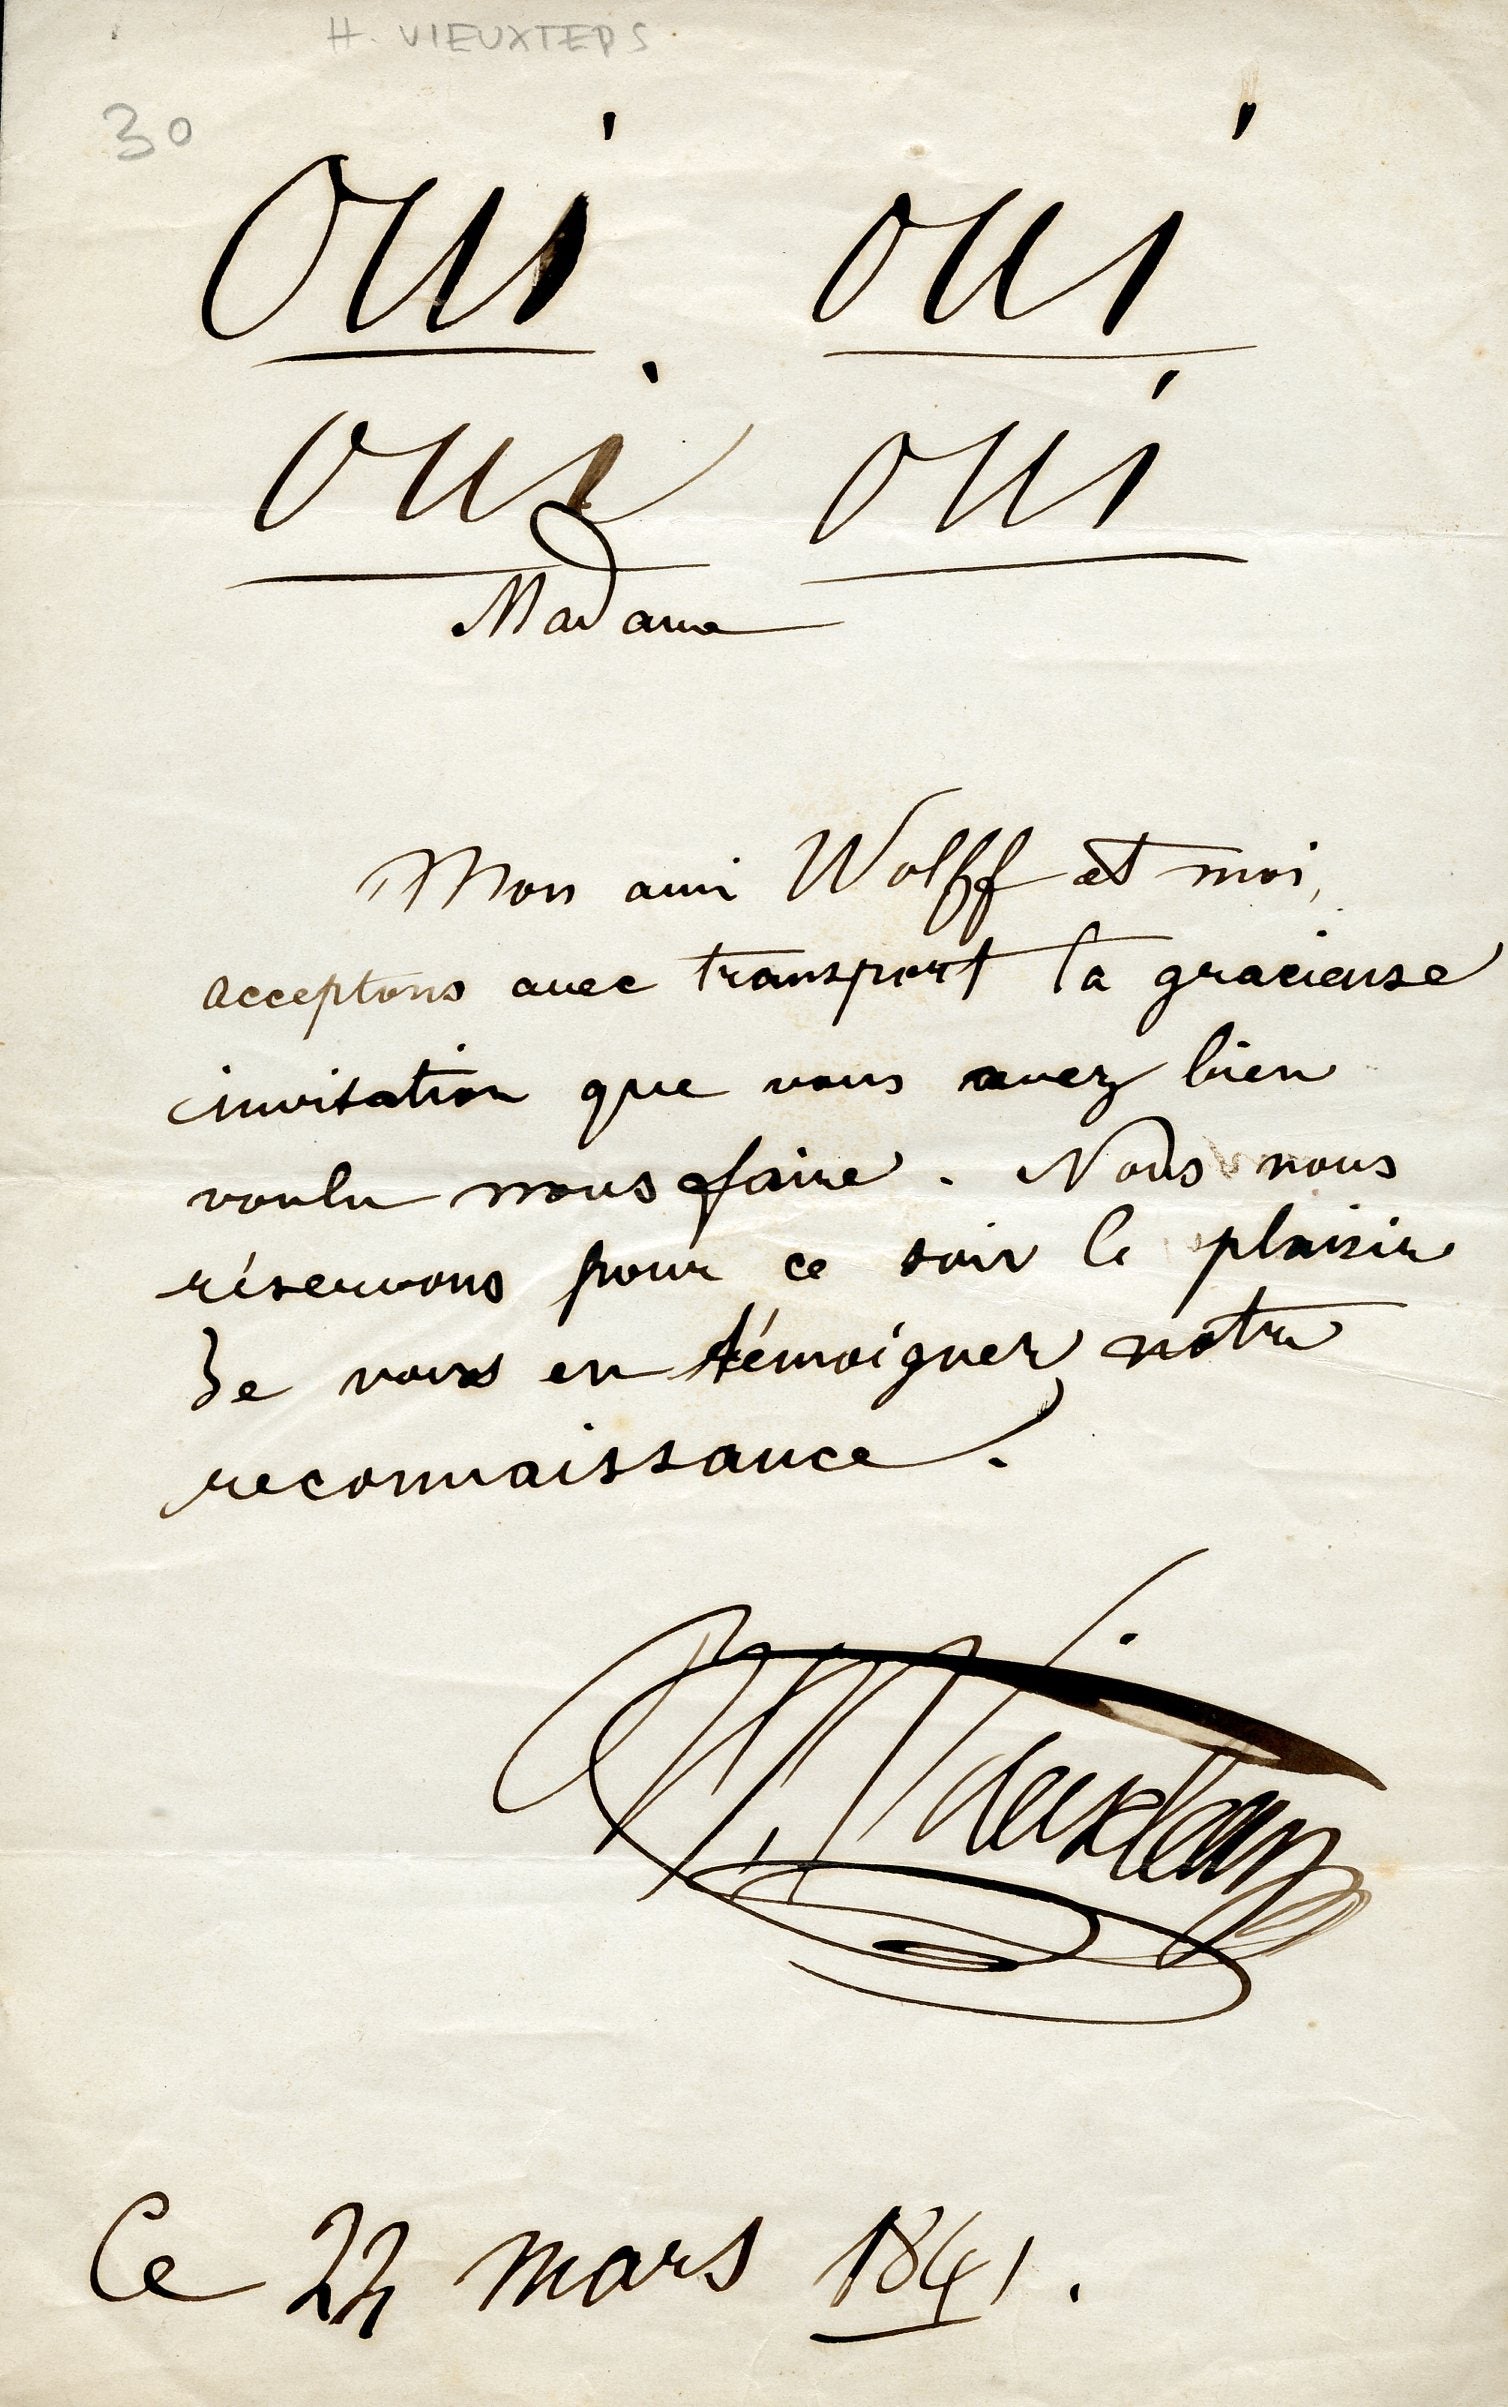 H. VIEUXTEPS
30
oui oui
oui oui
Madame
Mon ami Wolff et moi,
acceptons avec transport la gracieuse
invitation que vous avez bien
voulu nous faire. Nous nous
réservons pour ce soir le plaisir
de vous en témoigner notre
reconnaissance.
H. Vieuxtemps
Ce 22 mars 1841.